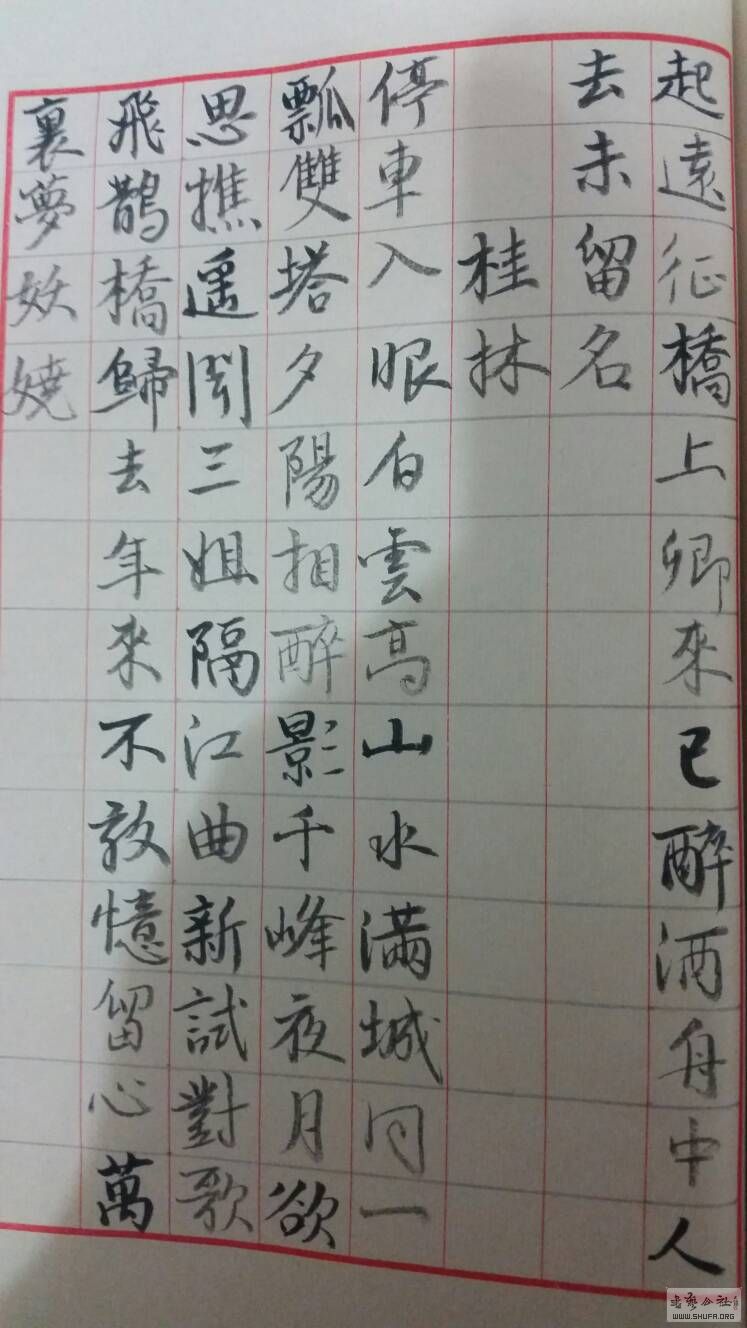 起遠征橋上卿來已醉酒舟中人
去未留名
桂林
停車入眼白雲高山水滿城同一
瓢雙塔夕陽相醉影千峰夜月欲
思樵遥聞三姐隔江曲新試對歌
飛鵲橋歸去年來不敢憶留心萬
裏夢妖嬈
書藝公社
WWW.SHUFA.ORG